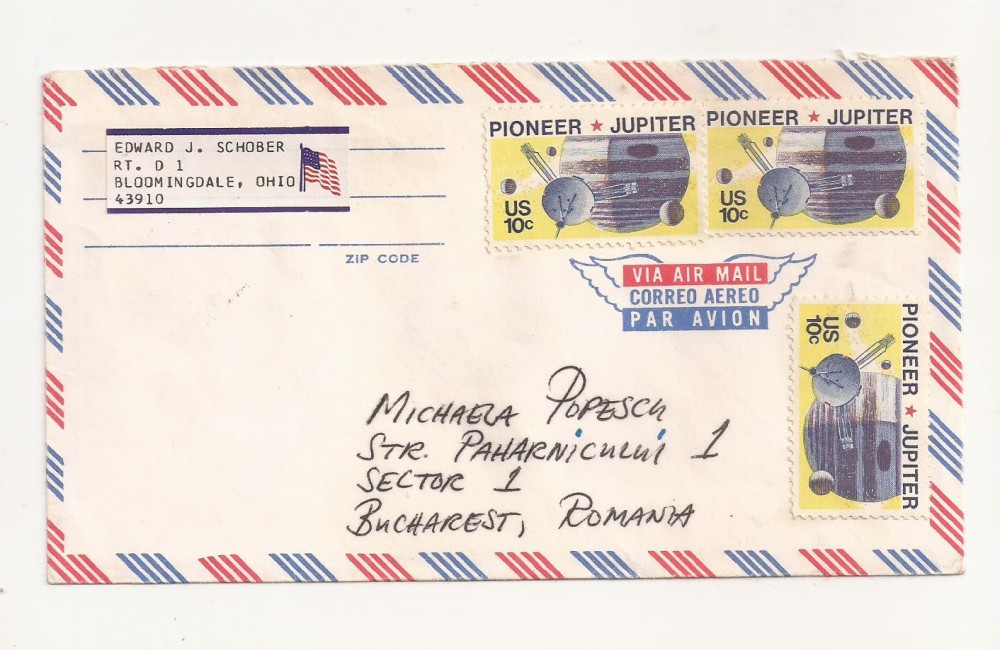 EDWARD J. SCHOBER
RT. D 1
BLOOMINGDALE, OHIO
43910
ZIP CODE
PIONEER ★ JUPITER
US
10c
PIONEER ★ JUPITER
US
10c
VIA AIR MAIL
CORREO AEREO
PAR AVION
PIONEER ★ JUPITER
US
10c
MICHAELA POPESCU
STR. PAHARNICULUI 1
SECTOR 1
BUCHAREST, ROMANIA